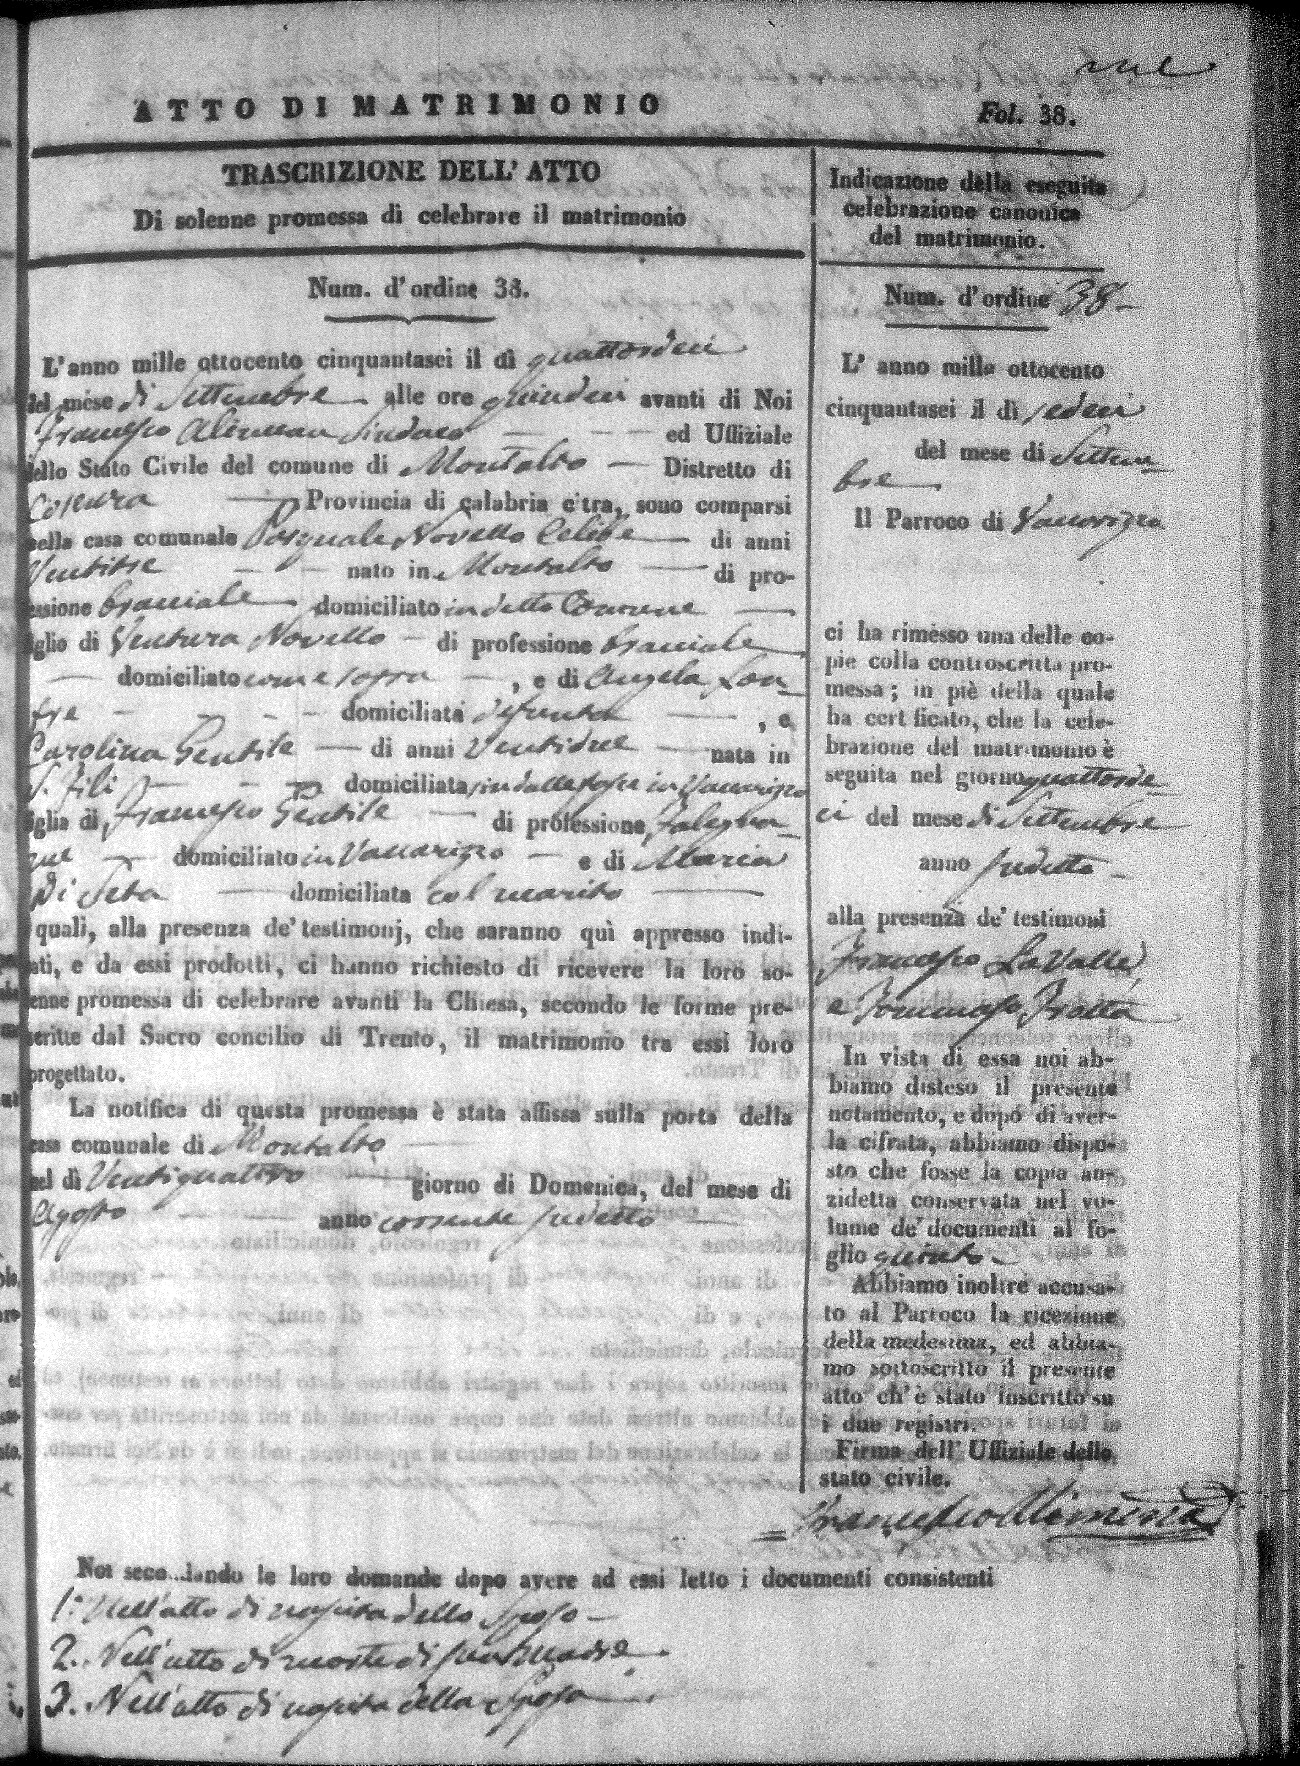 ATTO DI MATRIMONIO
Fol. 38.
TRASCRIZIONE DELL' ATTO
Di solenne promessa di celebrare il matrimonio
Num. d'ordine 38.
L'anno mille ottocento cinquantasei il dì quattordici
del mese di Settembre alle ore quindici avanti di Noi
Francesco Alimena Sindaco ed Uffiziale
dello Stato Civile del comune di Montalto Distretto di
Cosenza Provincia di calabria citra, sono comparsi
nella casa comunale Pasquale Novello Celibe di anni
Ventitre nato in Montalto di pro-
essione bracciale domiciliato in detto Comune
iglio di Ventura Novello di professione bracciale
domiciliato come sopra , e di Angela Lon
tre domiciliata defunta , e
Carolina Gentile di anni Ventidue nata in
S. Fili domiciliata in Vaccarizzo
iglia di Francesco Gentile di professione Falegna
me domiciliato in Vaccarizzo e di Maria
Di Seta domiciliata col marito
quali, alla presenza de' testimonj, che saranno quì appresso indi-
ati, e da essi prodotti, ci hanno richiesto di ricevere la loro so-
enne promessa di celebrare avanti la Chiesa, secondo le forme pre-
scritte dal Sacro concilio di Trento, il matrimonio tra essi loro
progettato.
La notifica di questa promessa è stata affissa sulla porta della
casa comunale di Montalto
nel dì Ventiquattro giorno di Domenica, del mese di
Agosto anno corrente sudetto
Indicazione della eseguita
celebrazione canonica
del matrimonio.
Num. d'ordine 38
L' anno mille ottocento
cinquantasei il dì sedici
del mese di Settem
bre
Il Parroco di Vaccarizzo
ci ha rimesso una delle co-
pie colla controscritta pro-
messa; in piè della quale
ha cert ficato, che la cele-
brazione del matrimonio è
seguita nel giorno quattordi
ci del mese di Settembre
anno sudetto
alla presenza de' testimoni
Francesco La Valle
e Tommaso Fratta
In vista di essa noi ab-
biamo disteso il presente
notamento, e dopo di aver-
la cifrata, abbiamo dispo-
sto che fosse la copia an-
zidetta conservata nel vo-
lume de' documenti al fo-
glio quinto
Abbiamo inoltre accusa-
to al Parroco la ricezione
della medesima, ed abbia-
mo sottoscritto il presente
atto ch' è stato inscritto su
i due registri.
Firma dell' Uffiziale dello
stato civile.
Francesco Alimena
Noi seco..dando le loro domande dopo avere ad essi letto i documenti consistenti
1: Nell'atto di nascita dello Sposo
2. Nell'atto di morte di sua Madre
3. Nell'atto di nascita della Sposa